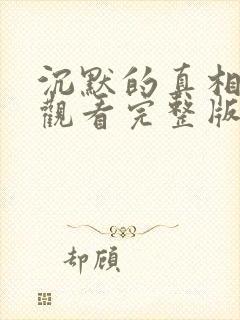 沉默的真相
觀看完整版
却顧